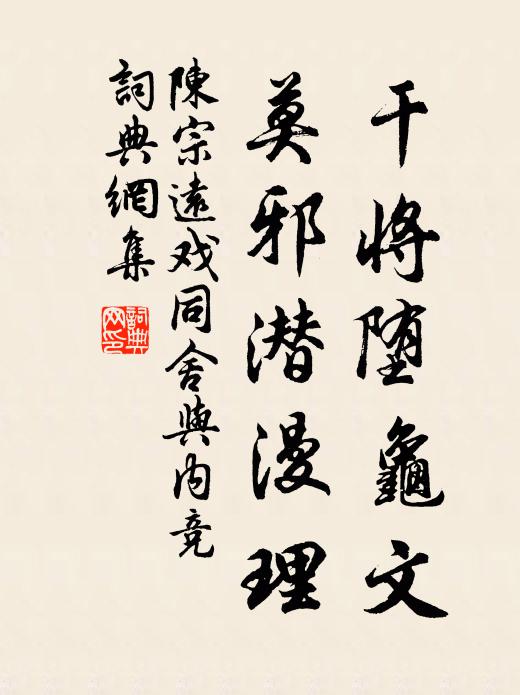 干将堕龜文
莫邪潜漫理
陳宗遠戏同舍與内竞
詞典網集
詞典
网印